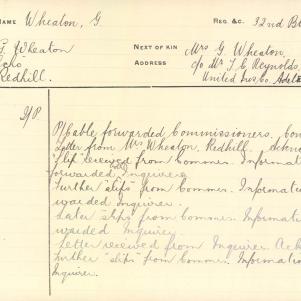 NAME Wheaton, G. REG. &c. 32nd B
G. Wheaton NEXT OF KIN Mrs G. Wheaton,
Echo ADDRESS c/o Mr T. C. Reynolds,
Redhill. United Ins. Co. Adel
P/P
P/P Cable forwarded Commissioners, Lon
Letter from Mrs Wheaton, Redhill.
"Slip" received from Commrs. Informati
forwarded Inquirer
Further "slips" from Commrs. Informatio
warded Inquirers.
Later slips from Commrs. Informati
warded Inquirer.
Letter received from Inquirer Ack
Further "slips" from Commrs. Information
Inquirer.